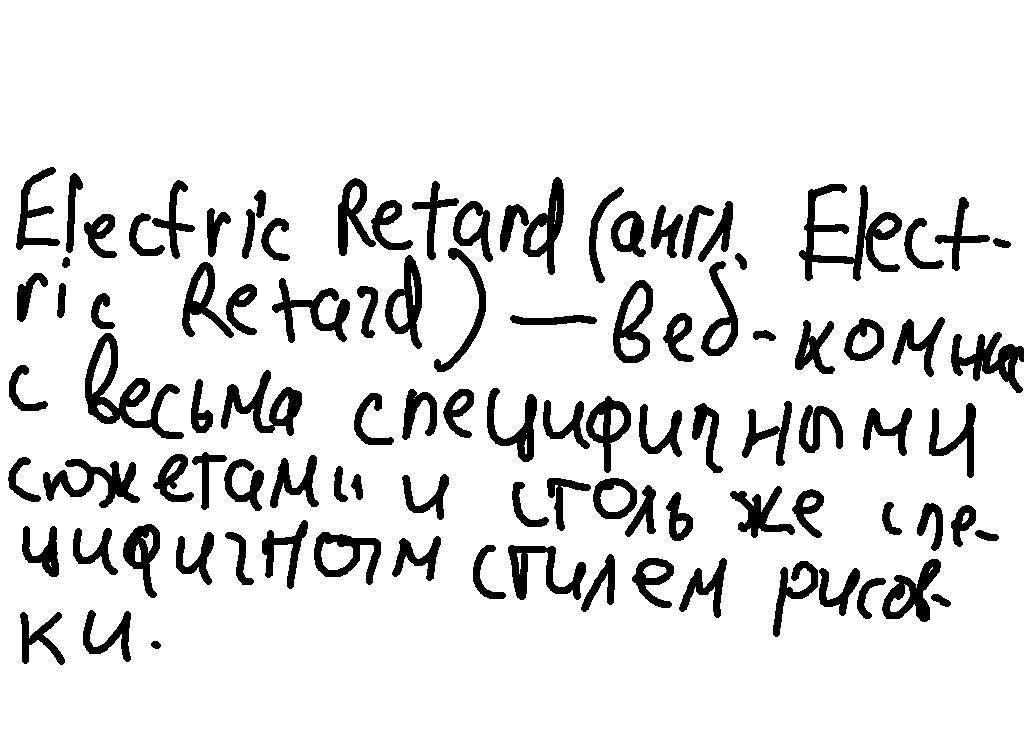 Electric Retard (англ. Elect-
ric Retard) — веб-комикс
с весьма специфичными
сюжетами и столь же спе-
цифичным стилем рисов-
ки.